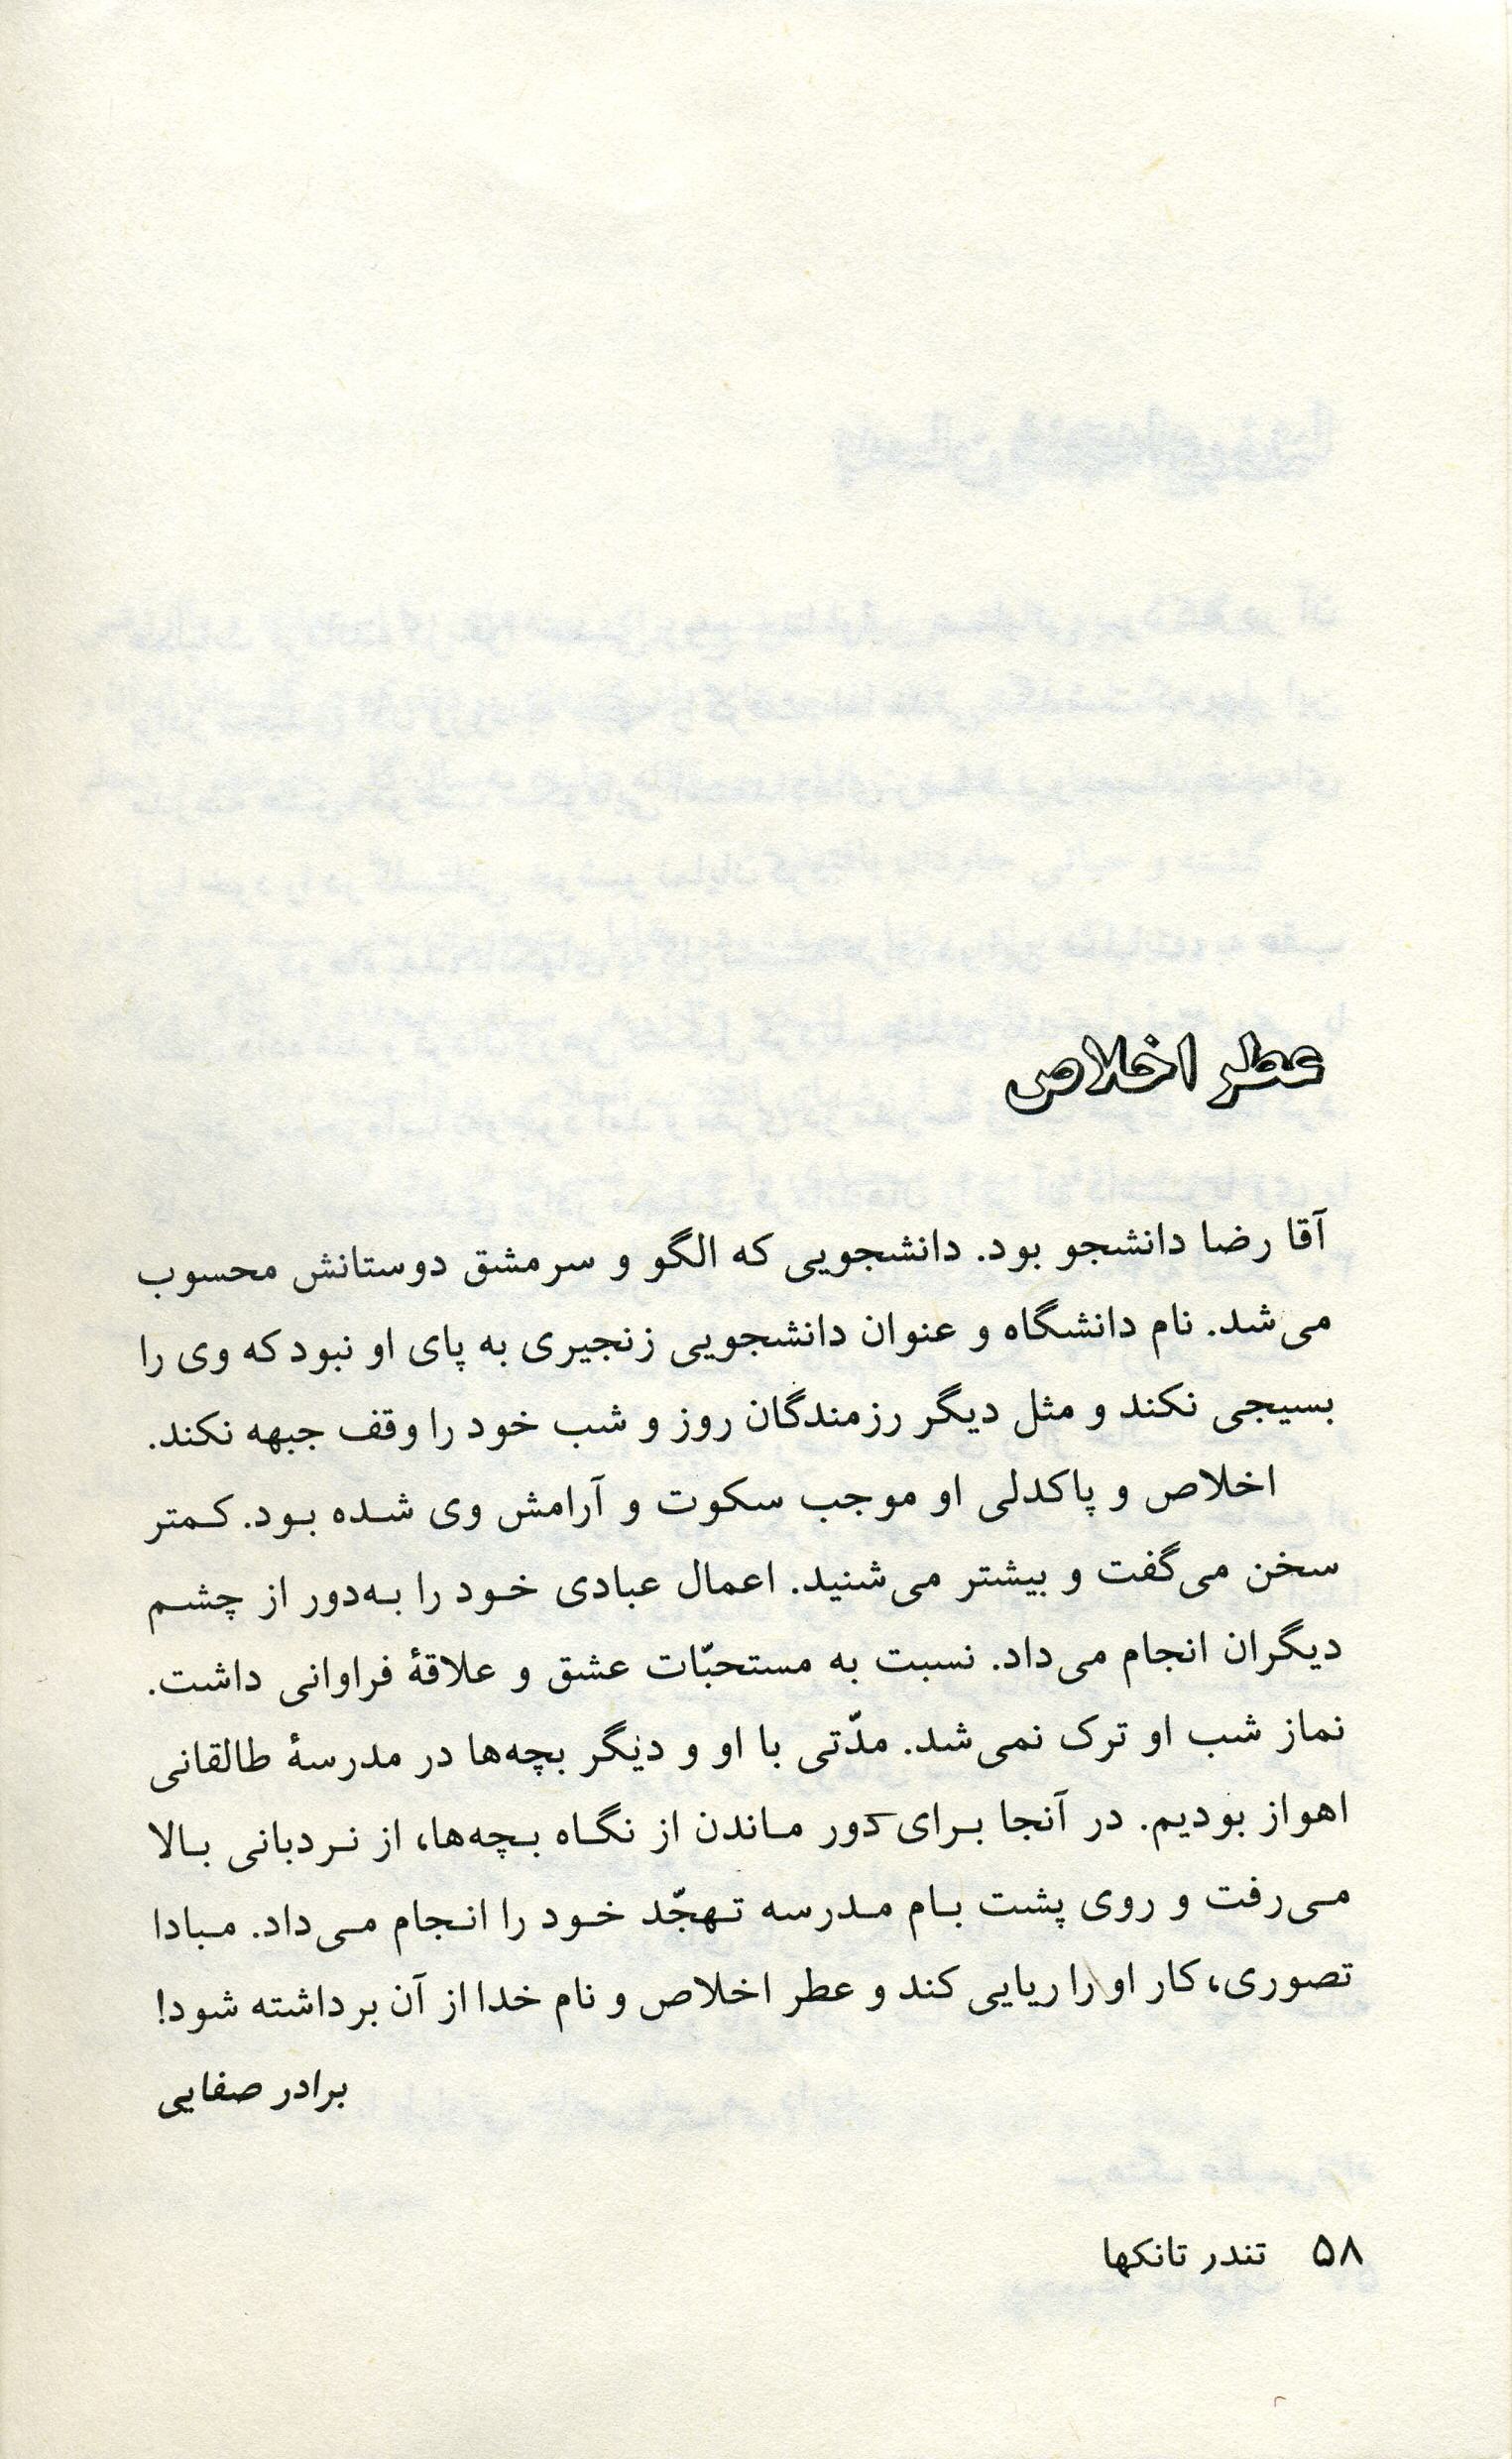 عطر اخلاص
آقا رضا دانشجو بود. دانشجویی که الگو و سرمشق دوستانش محسوب
می‌شد. نام دانشگاه و عنوان دانشجویی زنجیری به پای او نبود که وی را
بسیجی نکند و مثل دیگر رزمندگان روز و شب خود را وقف جبهه نکند.
اخلاص و پاکدلی او موجب سکوت و آرامش وی شده بود. کمتر
سخن می‌گفت و بیشتر می‌شنید. اعمال عبادی خود را به‌دور از چشم
دیگران انجام می‌داد. نسبت به مستحبّات عشق و علاقهٔ فراوانی داشت.
نماز شب او ترک نمی‌شد. مدّتی با او و دیگر بچه‌ها در مدرسهٔ طالقانی
اهواز بودیم. در آنجا برای دور ماندن از نگاه بچه‌ها، از نردبانی بالا
می‌رفت و روی پشت بام مدرسه تهجّد خود را انجام می‌داد. مبادا
تصوری، کار او را ریایی کند و عطر اخلاص و نام خدا از آن برداشته شود!
برادر صفایی
۵۸ تندر تانکها